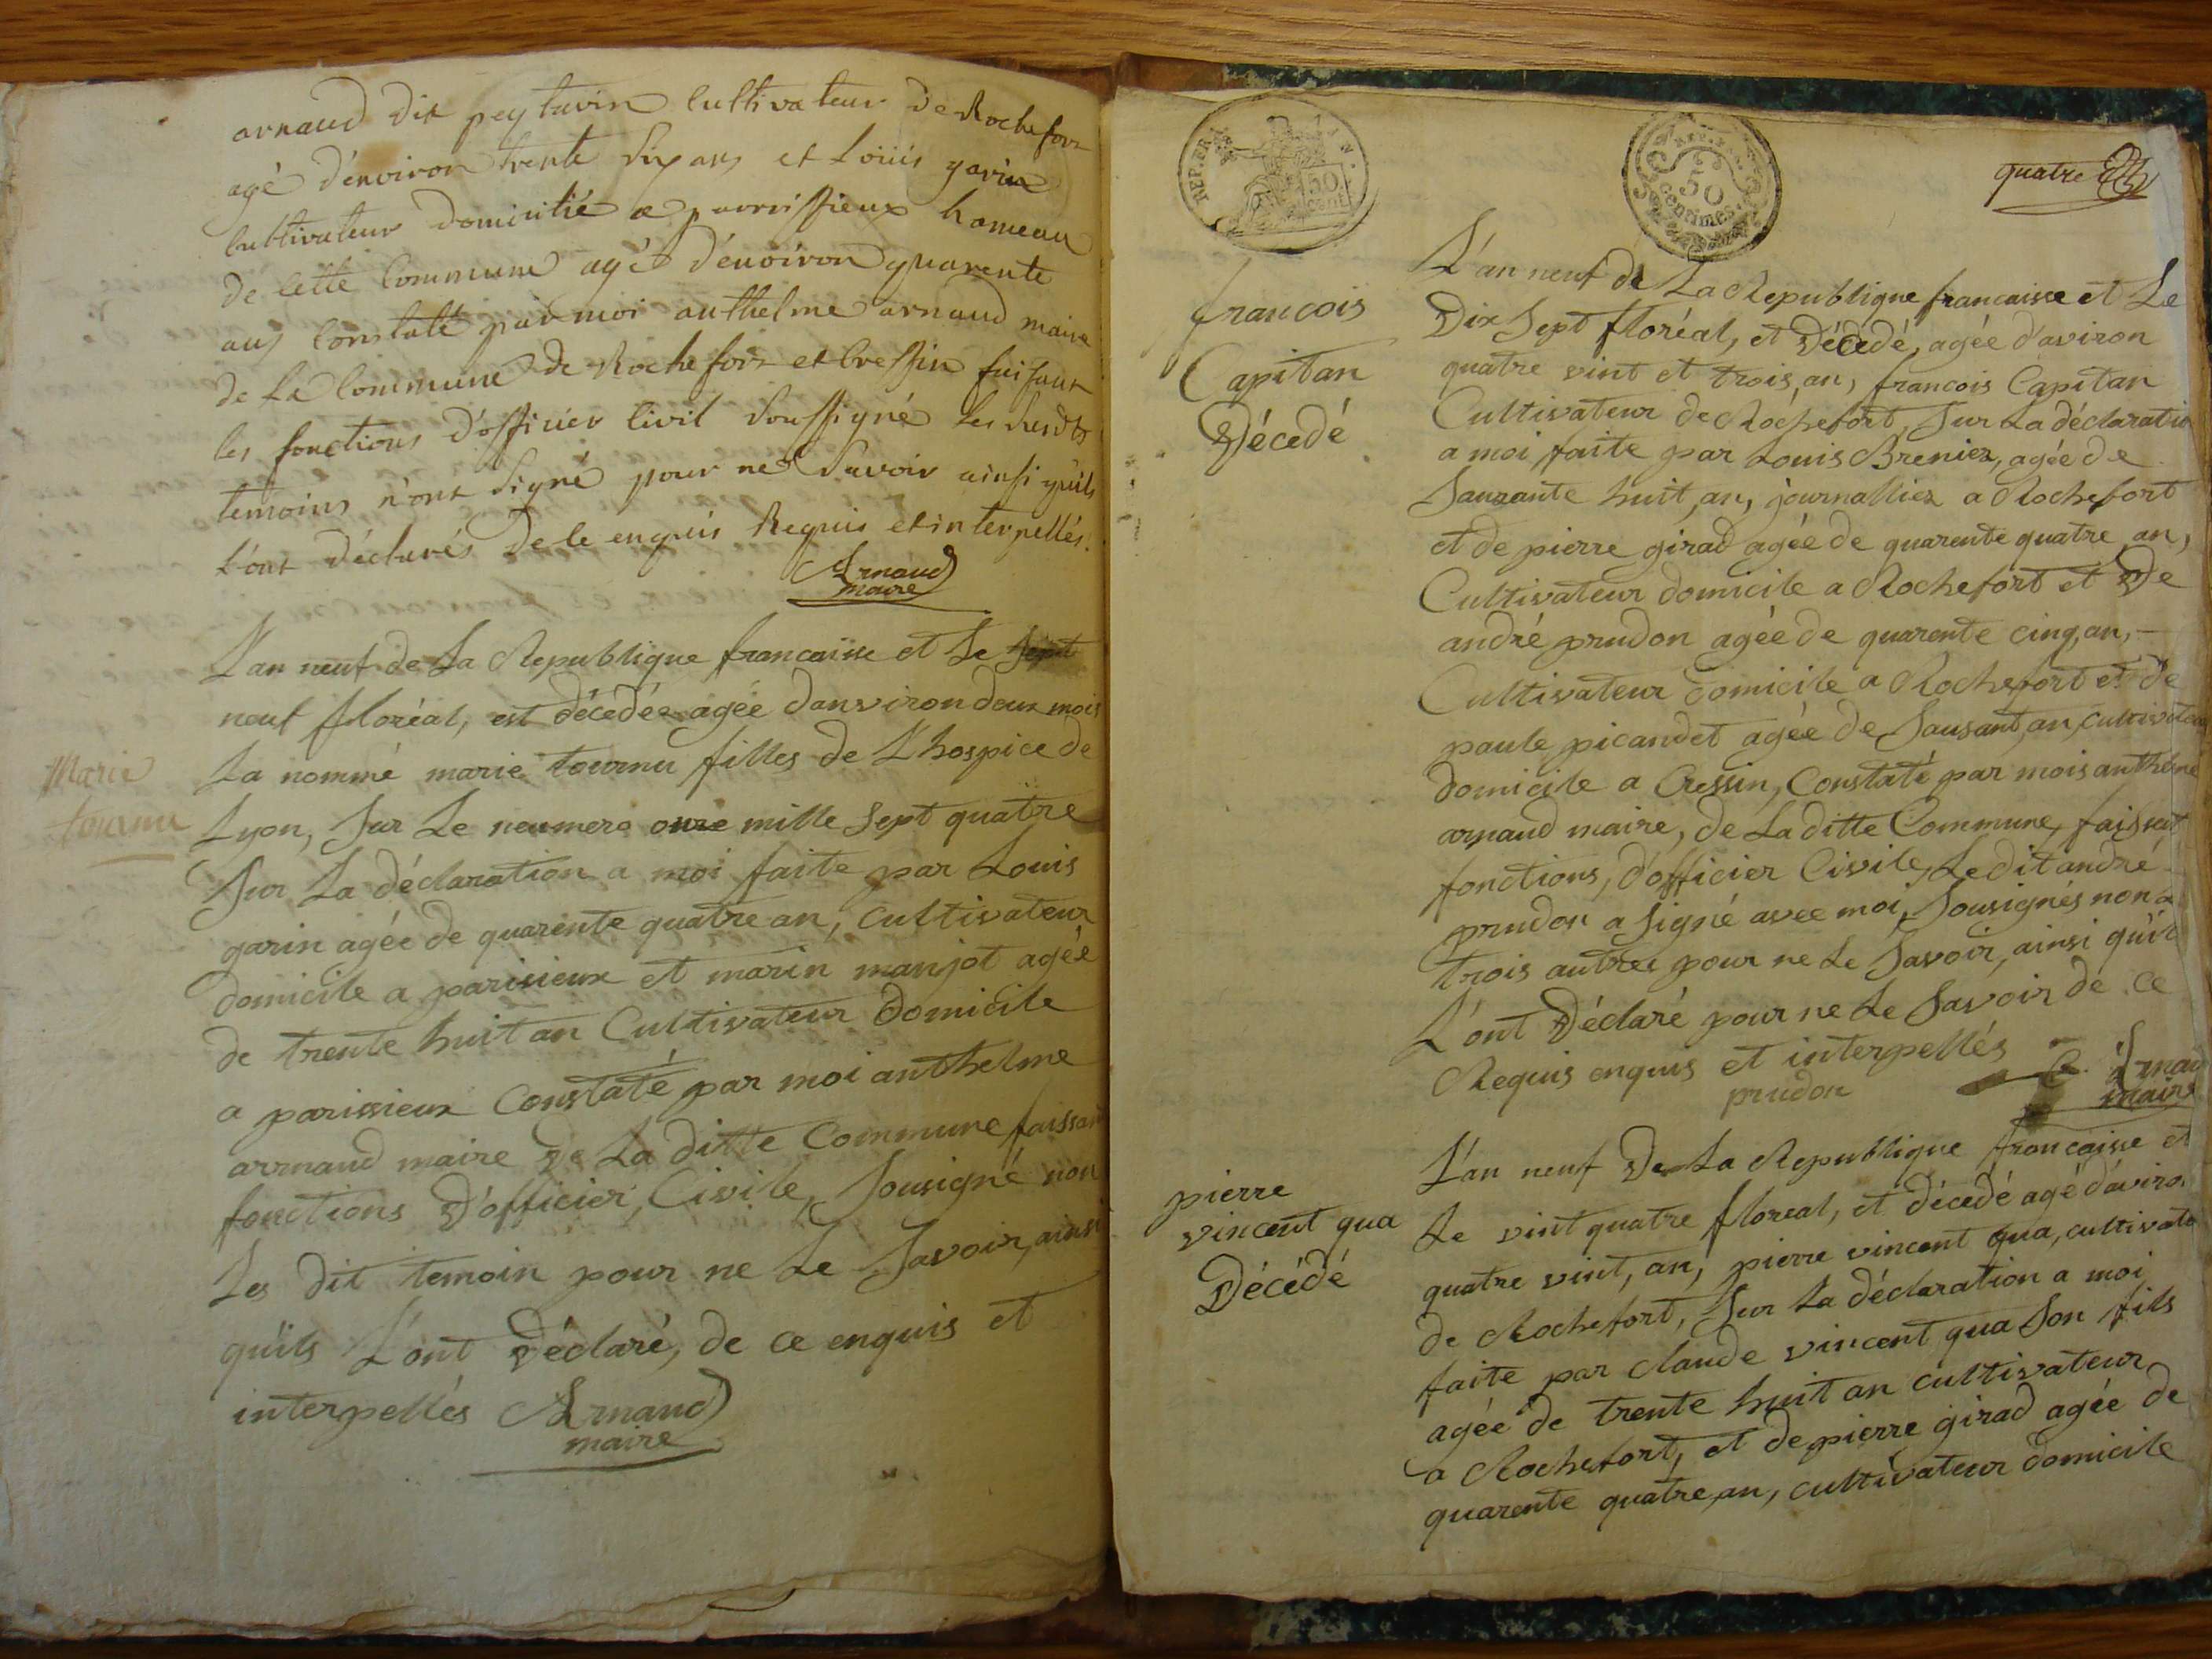 arnaud dit peytavin Cultivateur de Rochefort
agé d'énviron trente six ans et Loüis garin
Cultivateur domicilié a parrissieux hameau
de Cette Commune agé d'énviron quarente
ans Constaté par moi anthelme arnaud maire
de La Commune de Rochefort et Cressin faisant
les fonctions d'officier Civil Soussigné les susdts
temoins n'ont signé pour ne Savoir ainsi quils
l'ont déclarés de Ce enquis Requis et interpellés.
Arnaud
maire
L'an neuf de La Republique francaisse et Le Sept
neuf floréal, est décédée agée danviron deux mois
La nommé marie tournu filles de L'hospice de
Lyon, Sur Le neumero onze mille Sept quatre
Sur La déclaration a moi faite par Louis
garin agée de quarente quatre an, cultivateur
domicile a parisieux et marin manjot agée
de trente huit an Cultivateur domicile
a parissieux Constaté par moi anthelme
arrnaud maire de La ditte Commune faissant
fonctions d'officier, Civile, Sousigné non
Les dit temoin pour ne Le Savoir, ainsi
quils L'ont déclaré, de ce enquis et
interpellés Arnaud
maire
Marie
tournu
REP. FRA.
50
cent
REP.
50
centimes.
quatre
francois
Capitan
Décedé
L'an neuf de La Republique francaisse et Le
Dix Sept floréal, et Décédé, agée d'aviron
quatre vint et trois, an, francois Capitan
Cultivateur de Rochefort, Sur La déclaratio
a moi faite par Louis Brenier, agée de
Sauzante huit, an, journallier a Rochefort
et de pierre girad agée de quarente quatre an,
Cultivateur domicile a Rochefort et De
andré prudon agée de quarente cinq, an, –
Cultivateur domicile a Rochefort et de
paule picandet agée de Sausant, an, cultivateur
domicile a Cressin, Constaté par mois anthelme
arnaud maire, de La ditte Commune, faissent
fonctions, d'officier Civile, Le dit andré
prudon a Signé avec moi, Sousignés non a
trois autres pour ne Le Savoir, ainsi qu'il
L'ont Déclaré pour ne Le Savoir de ce
Requis enquis et interpellés
prudon
Arnaud
maire
pierre
vincent qua
Décédé
L'an neuf De La Republique francaisse et
Le vint quatre floreal, et décedé agé d'aviron
quatre vint, an, pierre vincent qua, cultivate
de Rochefort, Sur La déclaration a moi
faite par claude vincent qua Son fils
agée de trente huit an cultivateur
a Rochefort, et de pierre girad agée de
quarente quatre, an, cultivateur domicile